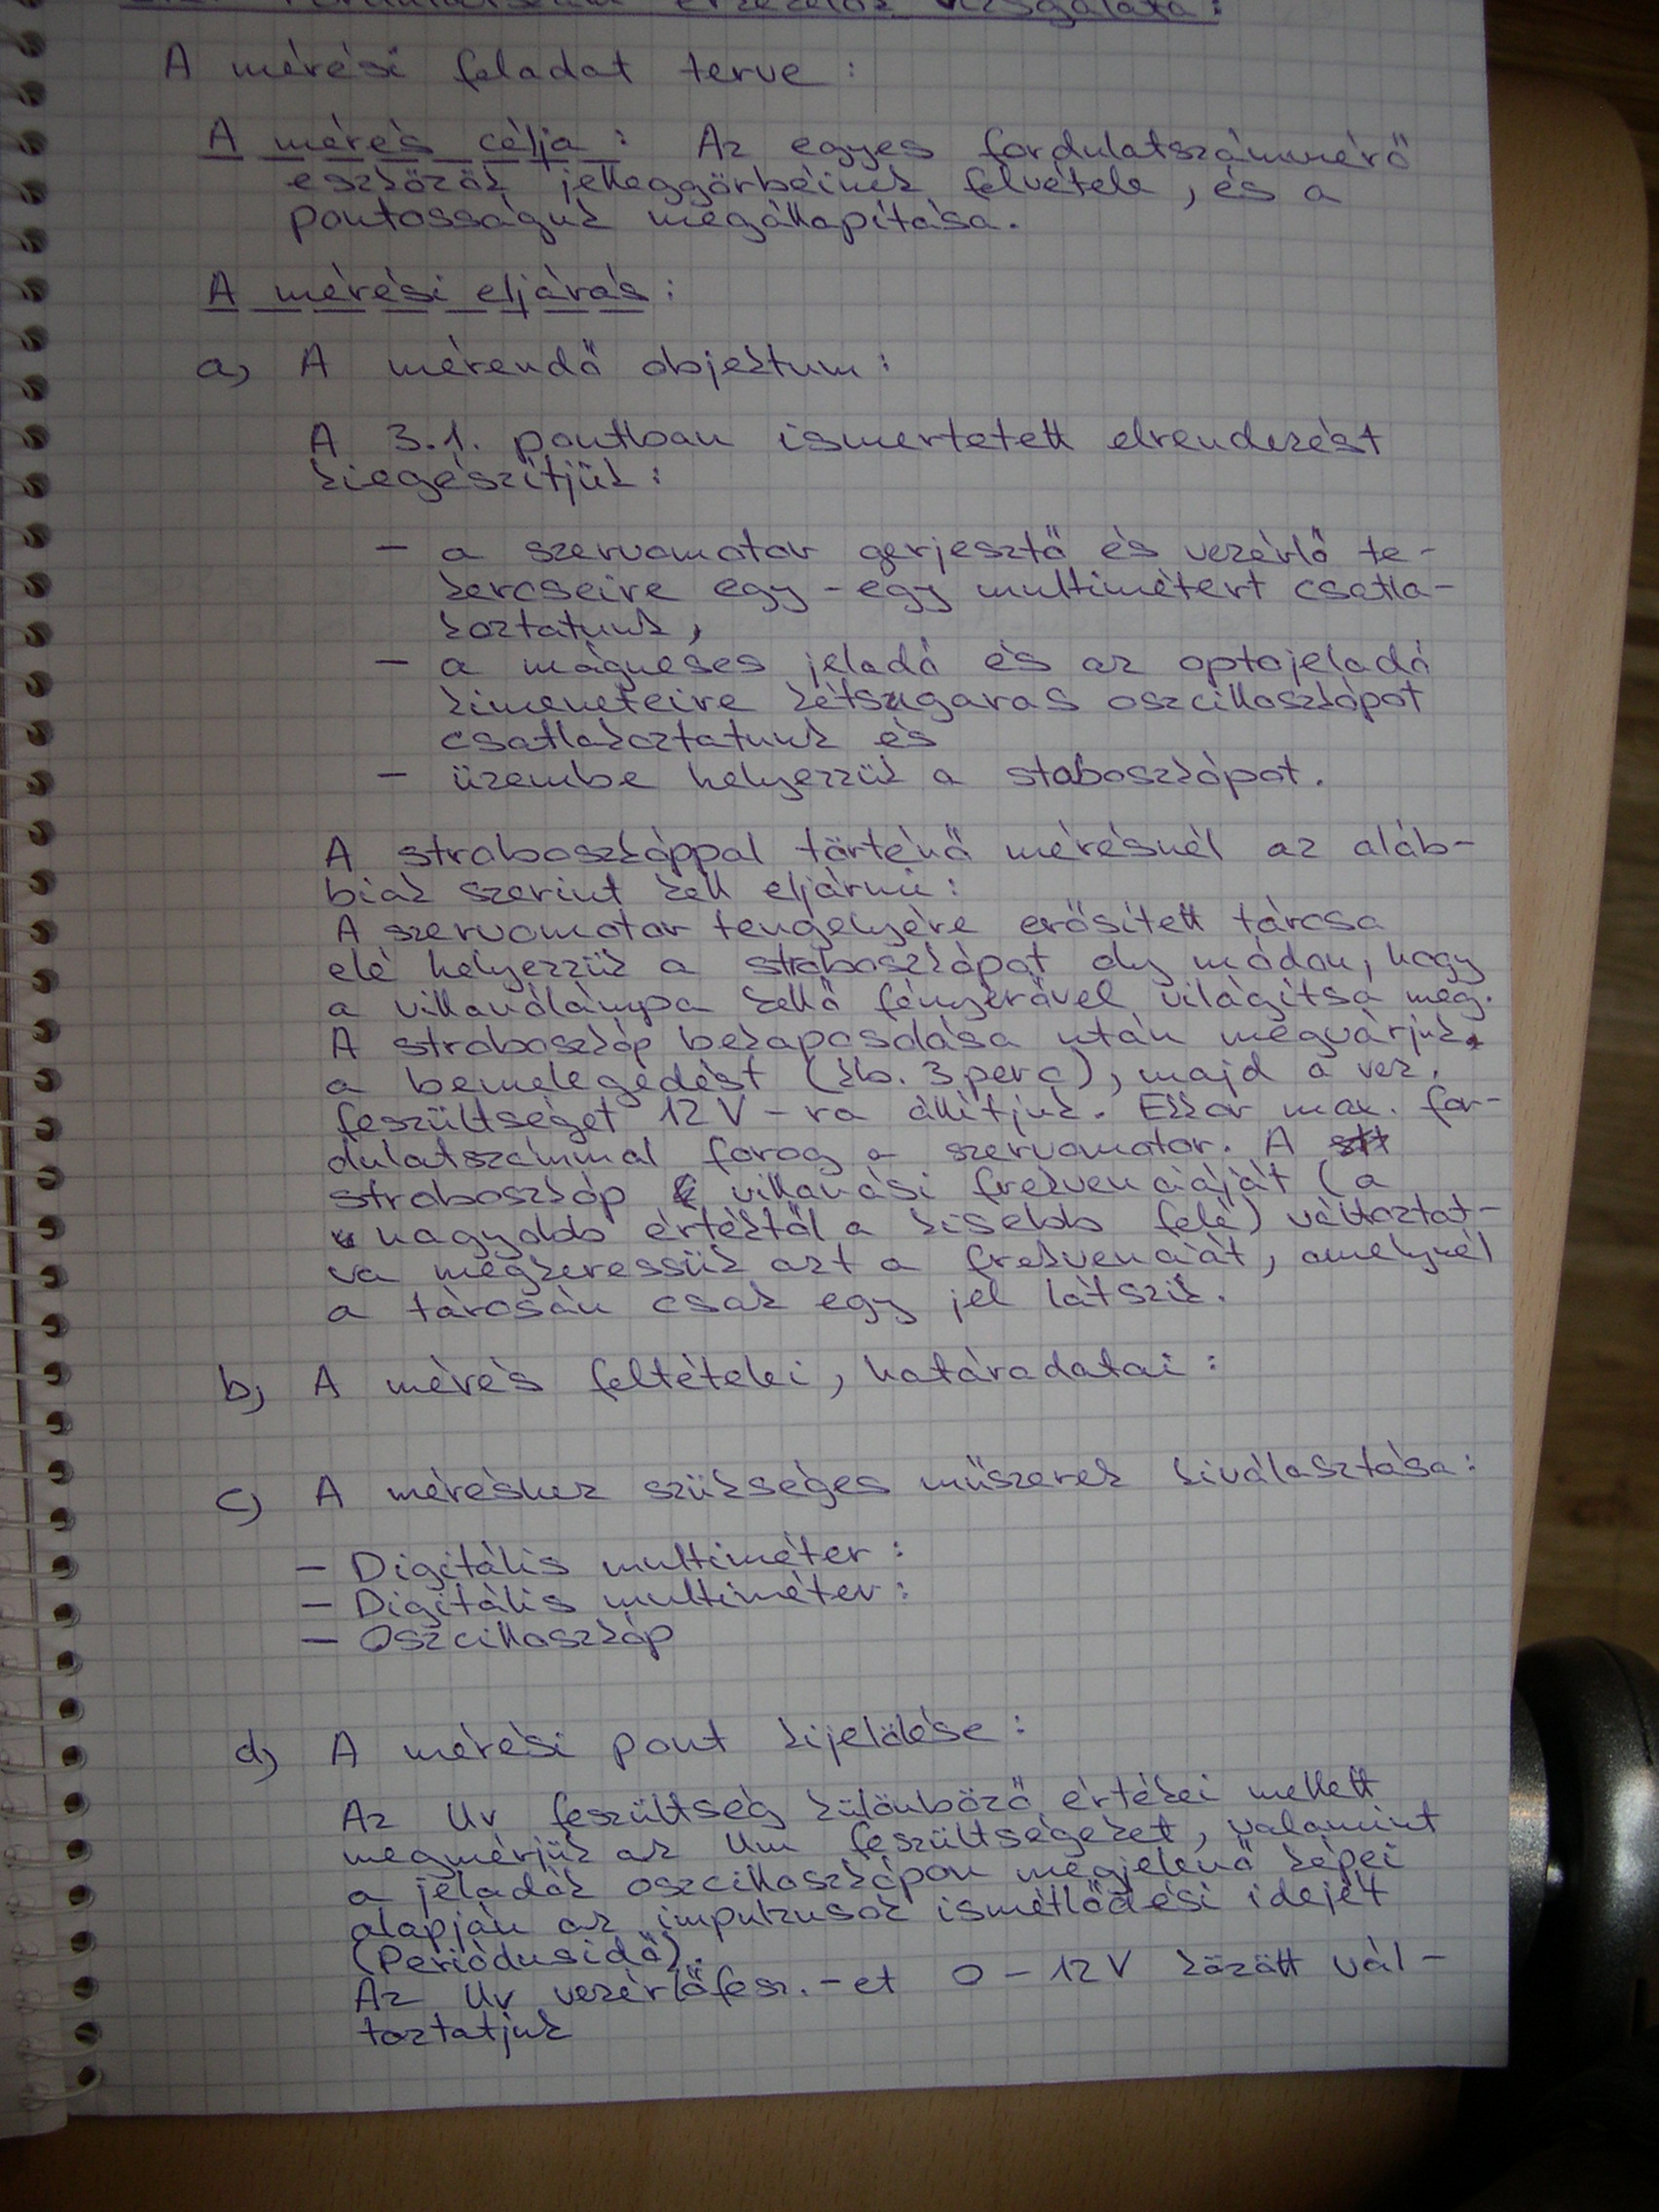 Fordulatszám érzékelők vizsgálata:
A mérési feladat terve:
A mérés célja: Az egyes fordulatszámmérő
eszközök jelleggörbéinek felvétele, és a
pontosságuk megállapítása.
A mérési eljárás:
a, A mérendő objektum:
A 3.1. pontban ismertetett elrendezést
kiegészítjük:
- a szervomotor gerjesztő és vezérlő te-
kercseire egy-egy multimétert csatla-
koztatunk,
- a mágneses jeladó és az optojeladó
kimeneteire kétsugaras oszcilloszkópot
csatlakoztatunk és
- üzembe helyezzük a stoboszkópot.
A stroboszkóppal történő mérésnél az aláb-
biak szerint kell eljárni:
A szervomotor tengelyére erősített tárcsa
elé helyezzük a stroboszkópot oly módon, hogy
a villanólámpa kellő fényerővel világítsa meg.
A stroboszkóp bekapcsolása után megvárjuk
a bemelegedést (kb. 3 perc), majd a vez.
feszültséget 12 V-ra állítjuk. Ekkor max. for-
dulatszámmal forog a szervomotor. A
stroboszkóp villanási frekvenciáját (a
nagyobb értéktől a kisebb felé) változtat-
va megkeressük azt a frekvenciát, amelynél
a tárcsán csak egy jel látszik.
b, A mérés feltételei, határadatai:
c, A méréshez szükséges műszerek kiválasztása:
- Digitális multiméter:
- Digitális multiméter:
- Oszcilloszkóp
d, A mérési pont kijelölése:
Az Uv feszültség különböző értékei mellett
megmérjük az Um feszültségeket, valamint
a jeladók oszcilloszkópon megjelenő képei
alapján az impulzusok ismétlődési idejét
(Periódusidő).
Az Uv vezérlőfesz.-et 0-12V között vál-
toztatjuk